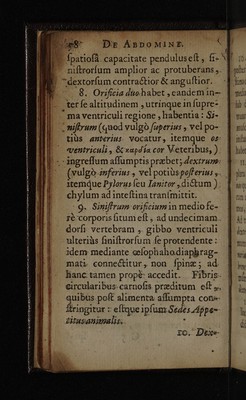 58 DE ABDOMINE.
spatiosâ capacitate pendulus est, si-
nistrorsum amplior ac protuberans,
dextorsum contractior & angustior.
8. Orificia duo habet, eandem in-
ter se altitudinem, utrinque in supre-
ma ventriculi regione, habentia : Si-
nistrum (quod vulgò superius, vel po-
tiùs anterius vocatur, itemque os
ventriculi, & καρδία cor Veteribus,)
ingressum assumptis præbet; dextrum
(vulgò inferius, vel potiùs posterius,
itemque Pylorus seu Ianitor, dictum)
chylum ad intestina transmittit.
9. Sinistrum orificium in medio fe-
rè corporis situm est, ad undecimam
dorsi vertebram, gibbo ventriculi
ulteriùs sinistrorsum se protendente :
idem mediante œsophaho diaphrag-
mati connectitur, non spinæ; ad
hanc tamen propè accedit. Fibris
circularibus carnosis præditum est,
quibus post alimenta assumpta con-
stringitur : estque ipsum Sedes Appe-
titus animalis.
10. Dex-